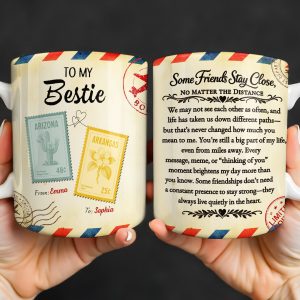 TO MY
Bestie
ARIZONA
48¢
ARKANSAS
25¢
From: Emma
To: Sophia
Some Friends Stay Close,
NO MATTER THE DISTANCE
We may not see each other as often, and
life has taken us down different paths—
but that's never changed how much you
mean to me. You're still a big part of my life,
even from miles away. Every
message, meme, or "thinking of you"
moment brightens my day more than
you know. Some friendships don't need
a constant presence to stay strong—they
always live quietly in the heart.